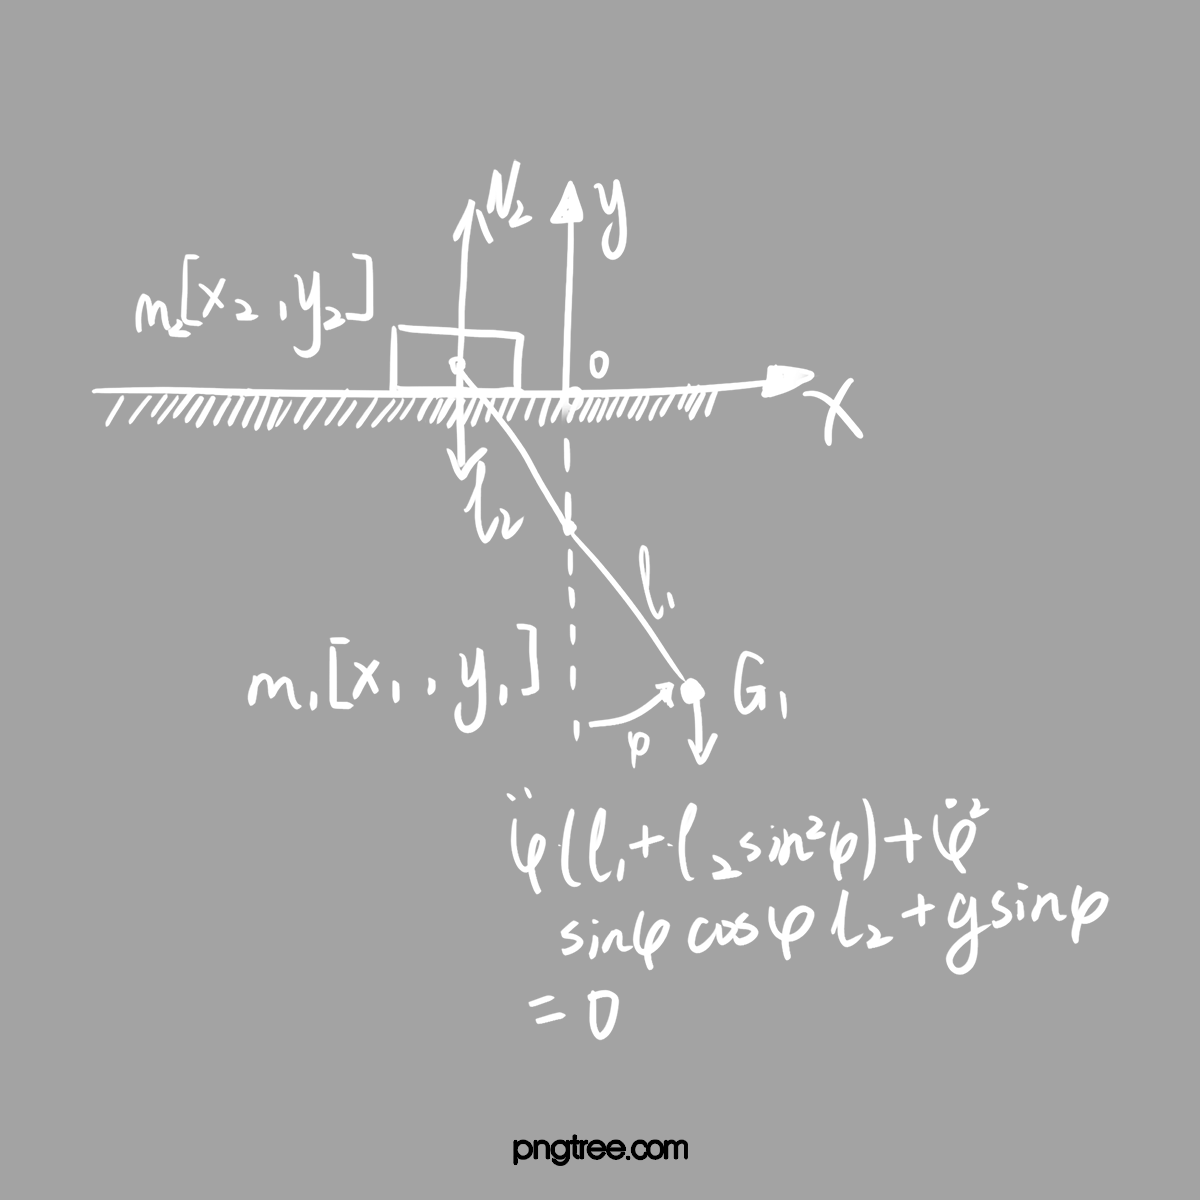 N₂
y
m₂[x₂,y₂]
0
X
l₂
l₁
m₁[x₁,y₁]
G₁
φ
φ̈(l₁+l₂sin²φ)+φ̈²
sinφ cosφ l₂+gsinφ
=0
pngtree.com